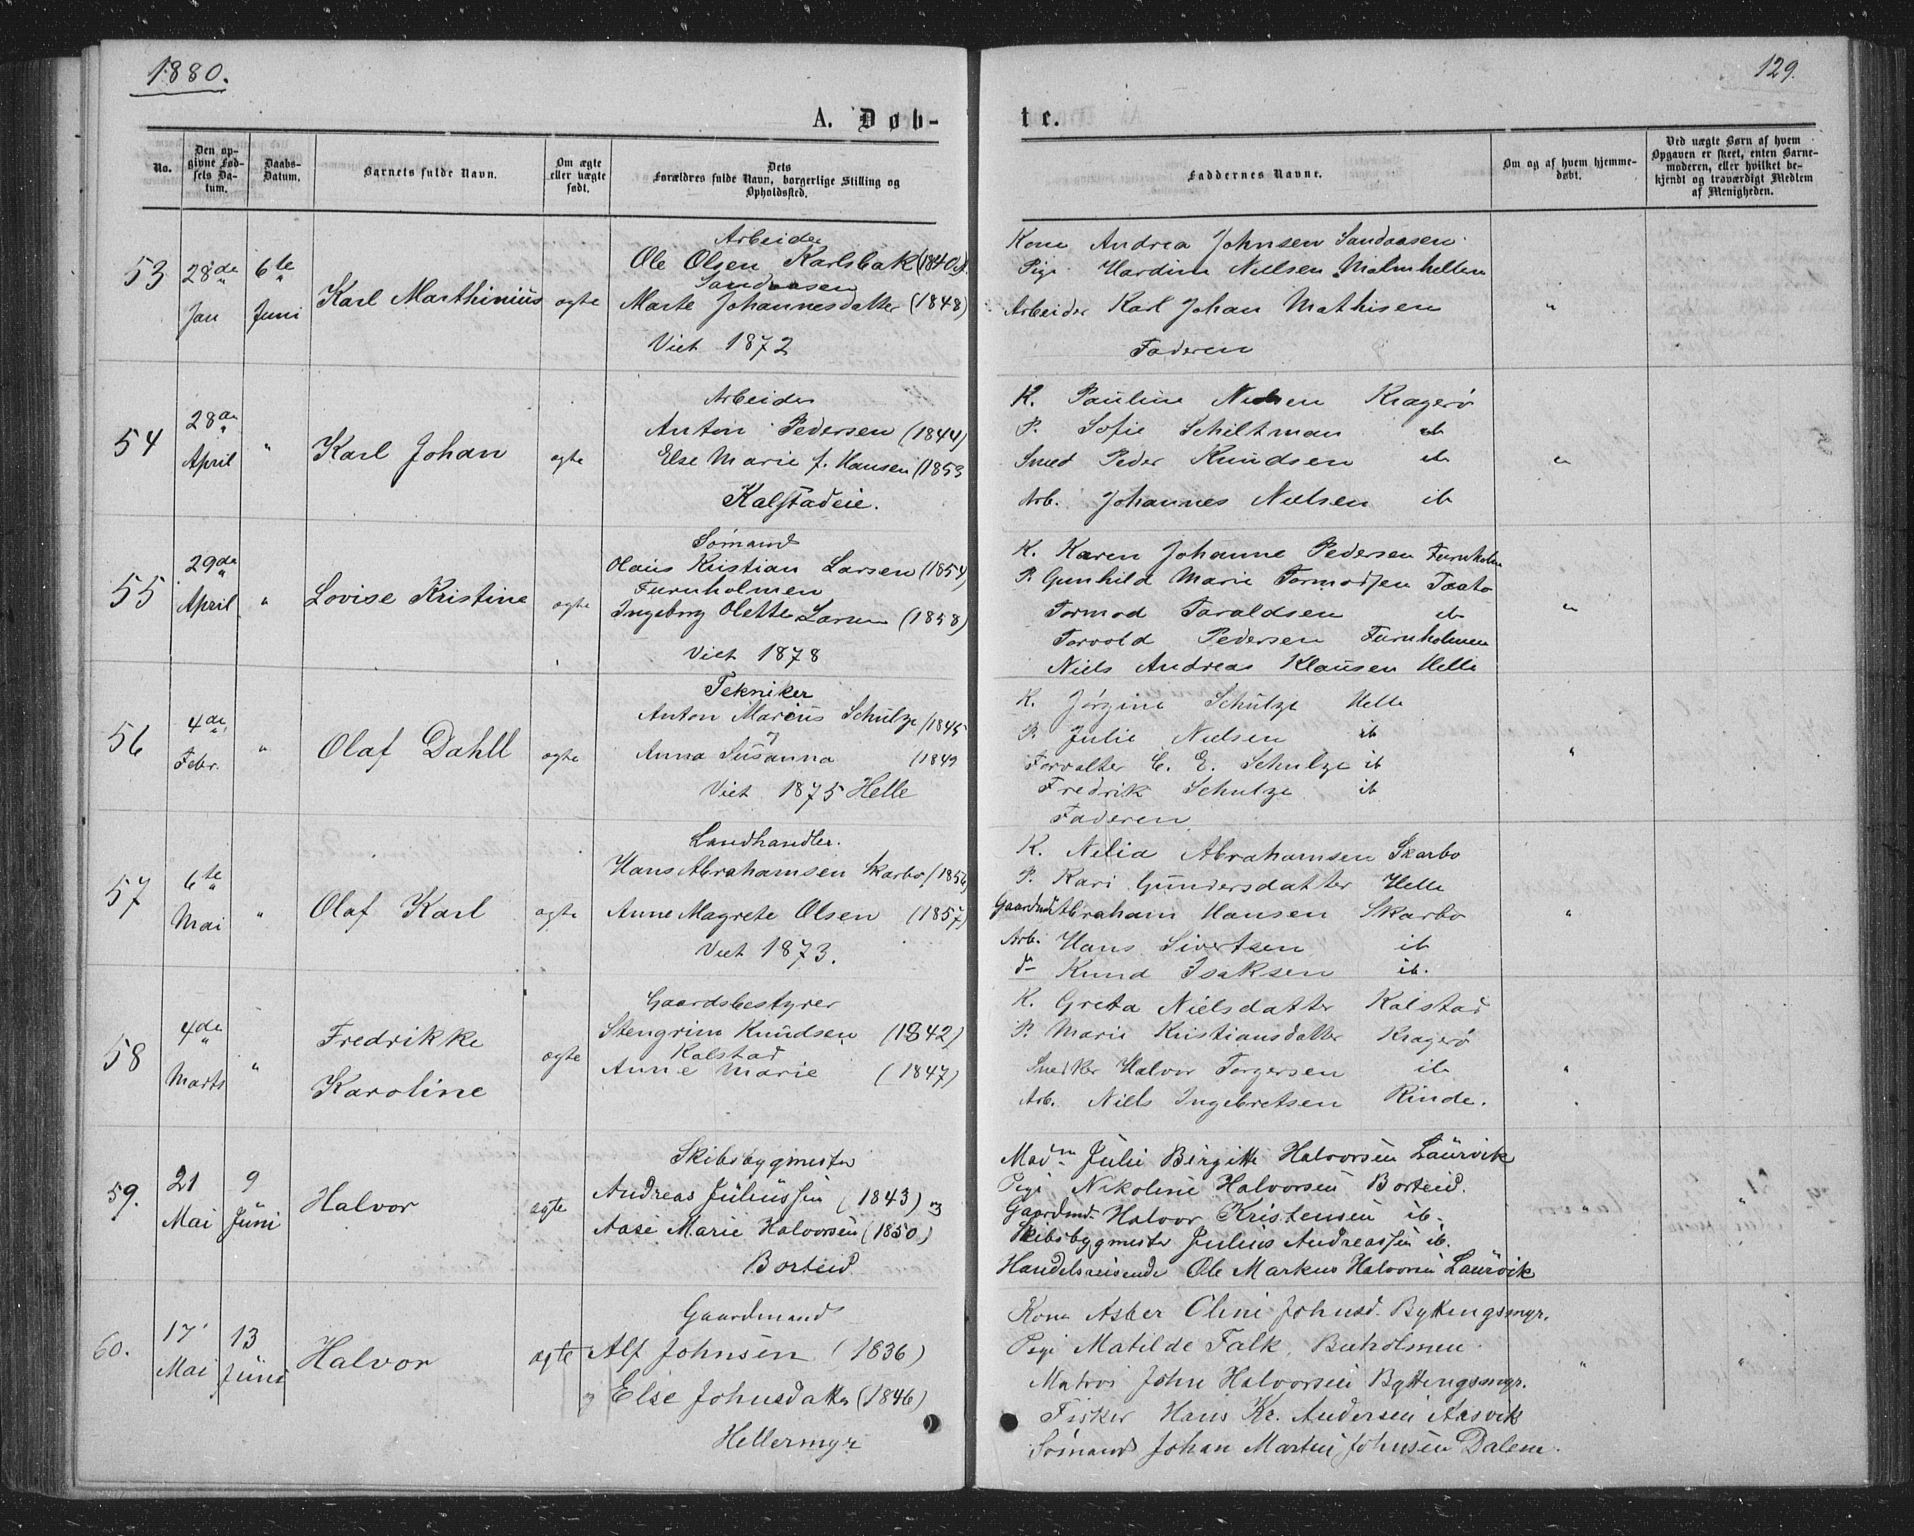 1880.
129.
A. Døb-
te.
No.
Den op-
givne Fød-
sels Da-
tum.
Daabs-
Datum.
Barnets fulde Navn.
Om ægte
eller uægte
født.
Dets
Forældres fulde Navn, borgerlige Stilling og
Opholdssted.
Faddernes Navne.
Om og af hvem hjemme-
døbt.
Ved uægte Børn af hvem
Opgaven er skeet, enten Barne-
moderen, eller hvilket be-
kjendt og troværdigt Medlem
af Menigheden.
53
28de
Jan
6te
Juni
Karl Marthinius
ægte
Arbeider
Ole Olsen Karlsbak (1840)
Sandaasen
Marte Johannesdatter (1848)
Viet 1872
Kone Andrea Johnsen Sandaasen
Pige Hardine Nielsen Malmhellen
Arbeider Karl Johan Mathisen
Faderen
"
54
28de
April
"
Karl Johan
ægte
Arbeider
Anton Pedersen (1844)
Else Marie f. Hansen (1853
Kalstadeie.
K. Pauline Nielsen Kragerø
P. Sofie Schiltman ib
Smed Peder Knudsen ib
Arb. Johannes Nielsen ib
"
55
29de
April
"
Lovise Kristine
ægte
Sømand
Olaus Kristian Larsen (1854)
Furuholmen
Ingeborg Olette Larsen (1858)
Viet 1878
K. Karen Johanne Pedersen Furuholm
P. Gunhild Marie Tormodsen Taato
Tormod Taraldsen ib
Torvold Pedersen Furuholmen
Niels Andreas Klausen Helle
"
56
4de
Febr.
"
Olaf Dahll
ægte
Tekniker
Anton Marius Schulze (1845
Anna Susanna (1849
Viet 1875 Helle
K. Jørgine Schulze Helle
P. Julie Nielsen ib
Forvalter C. E. Schulze ib
Fredrik Schulze ib
Faderen
"
57
6te
Mai
"
Olaf Karl
ægte
Landhandler.
Hans Abrahamsen Skarbo (1856)
Anne Magrete Olsen (1857)
Viet 1873.
K. Nelia Abrahamsen Skarbo
P. Kari Gundersdatter Helle
Gaardmd Abraham Hansen Skarbo
Arb. Hans Sivertsen ib
do Knud Isaksen ib.
"
58
4de
Marts
"
Fredrikke
Karoline
ægte
Gaardsbestyrer
Stengrim Knudsen (1842)
Kalstad
Anne Marie (1847)
K. Greta Nielsdatter Kalstad
P. Marie Kristiansdatter Kragerø
Snedker Halvor Torgersen ib
Arb. Niels Ingebretsen Rinde.
"
59.
21
Mai
9
Juni
Halvor
ægte
Skibsbygmester
Andreas Juliussen (1843) og
Aase Marie Halvorsen (1850)
Borteid
Madm Julie Birgitte Halvorsen Laurvik
Pige Nikoline Halvorsen Borteid.
Gaardmd. Halvor Kristensen ib.
Skibsbygmester Julius Andreassen ib.
Handelsreisende Ole Markus Halvorsen Laurvik
"
60.
17
Mai
13
Juni
Halvor
ægte
Gaardmand
Alf Johnsen (1836)
og Else Johnsdatter (1846)
Hellermyr
Kone Asber Oline Johnsd. Byttingsmyr.
Pige Matilde Falk, Buholmen
Matros John Halvorsen Byttingsmyr.
Fisker Hans Kr. Andersen Aasvik
Sømand Johan Martin Johnsen Dalene.
"
"